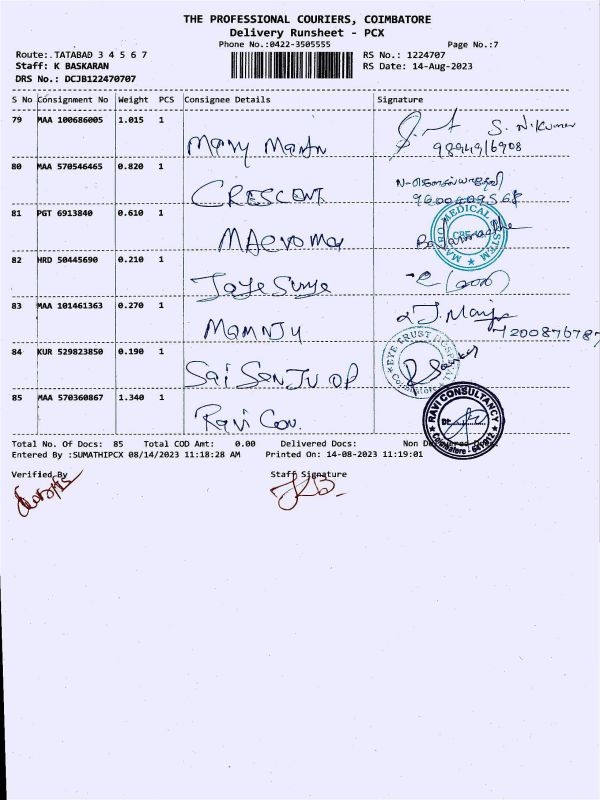 THE PROFESSIONAL COURIERS, COIMBATORE
Delivery Runsheet - PCX
Phone No.:0422-3505555
Page No.:7
Route: TATABAD 3 4 5 6 7
RS No.: 1224707
Staff: K BASKARAN
RS Date: 14-Aug-2023
DRS No.: DCJB122470707
S No Consignment No Weight PCS Consignee Details Signature
79 MAA 100686005 1.015 1
Mary Martn S. N. Kumar
80 MAA 570546465 0.820 1
CRESCENT
81 PGT 6913840 0.610 1
MAcroma MEDICAL SYSTEM
82 HRD 50445690 0.210 1
Jaye Surye
83 MAA 101461363 0.270 1
MAMNJU J. Manju
7200876787
84 KUR 529823850 0.190 1 EYE TRUST
Sai SanJu OP
85 MAA 570360867 1.340 1 RAVI CONSULTANCY
Ravi Con. Coimbatore - 641012
Total No. Of Docs: 85 Total COD Amt: 0.00 Delivered Docs: Non
Entered By :SUMATHIPCX 08/14/2023 11:18:28 AM Printed On: 14-08-2023 11:19:01
Verified By Staff Signature